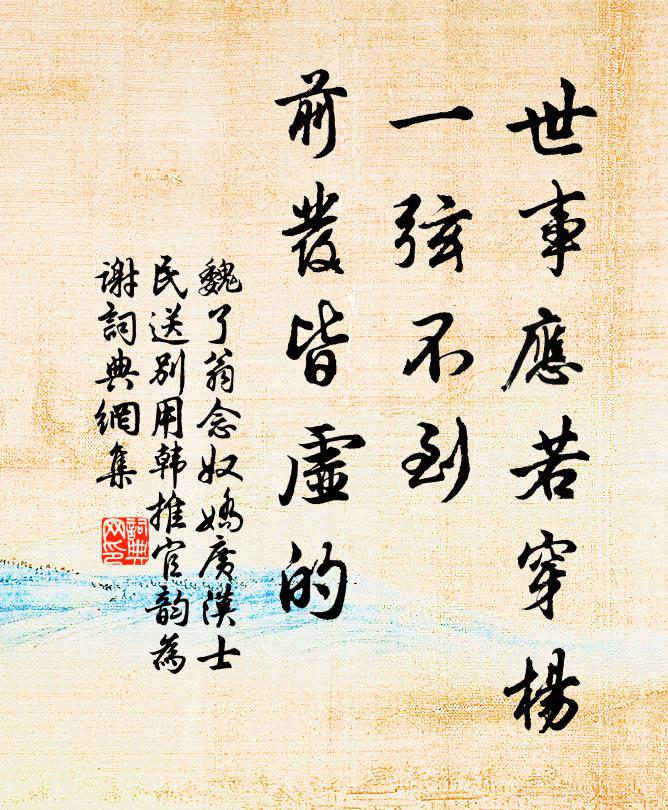 世事應若穿楊
一弦不到
前發皆虛的
魏了翁念奴嬌廣漢士
民送別用韩推官韵為
谢詞典網集
詞典
网印